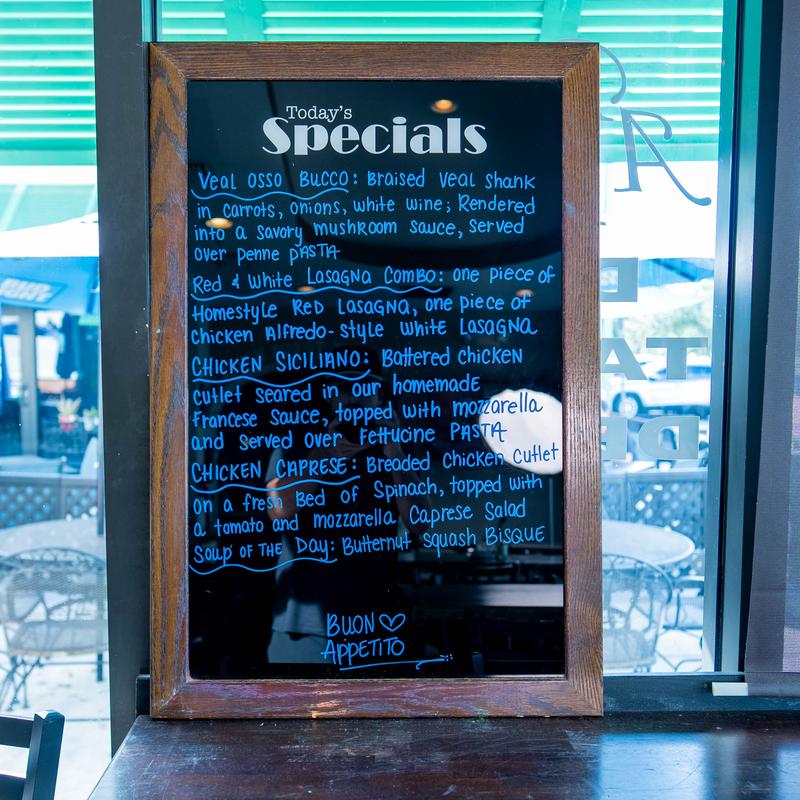 Today's
Specials
Veal Osso Bucco: Braised Veal Shank
in carrots, onions, white wine; Rendered
into a savory mushroom sauce, served
over penne PASTA
Red & White Lasagna Combo: one piece of
Homestyle Red Lasagna, one piece of
Chicken Alfredo-style White Lasagna
CHICKEN SICILIANO: Battered chicken
cutlet seared in our homemade
Francese sauce, topped with mozzarella
and served over Fettucine PASTA
CHICKEN CAPRESE: Breaded Chicken Cutlet
on a fresh Bed of Spinach, topped with
a tomato and mozzarella Caprese Salad
Soup of the Day: Butternut Squash Bisque
BUON♡
APPETITO